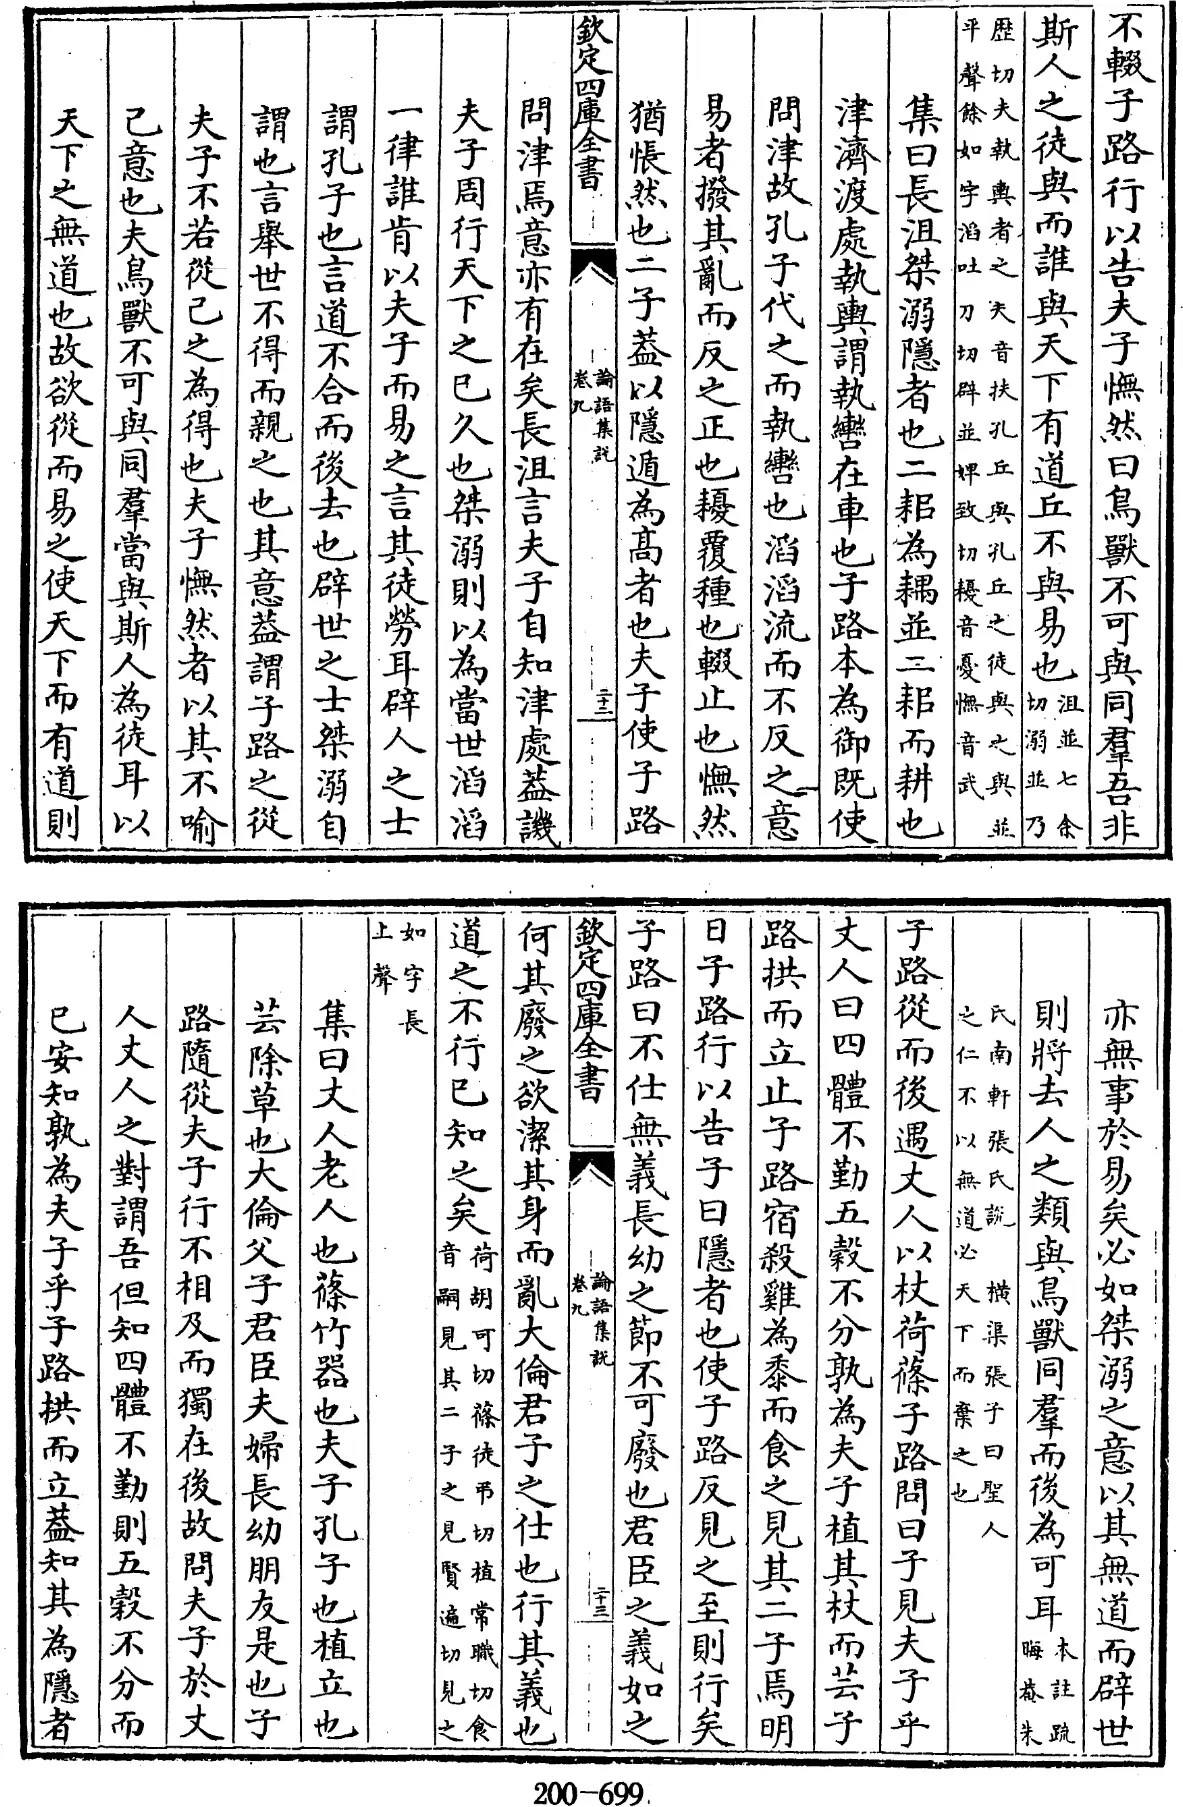 不輟子路行以告夫子憮然曰鳥獸不可與同羣吾非
斯人之徒與而誰與天下有道丘不與易也沮並七余切溺並乃
歴切夫執輿者之夫音扶孔丘與孔丘之徒與之與並
平聲餘如字滔吐刀切辟並婢致切耰音憂憮音武
集曰長沮桀溺隱者也二耜為耦並二耜而耕也
津濟渡處執輿謂執轡在車也子路本為御既使
問津故孔子代之而執轡也滔滔流而不反之意
易者撥其亂而反之正也耰覆種也輟止也憮然
猶悵然也二子葢以隱遁為髙者也夫子使子路
欽定四庫全書
論語集説
卷九
二十二
問津焉意亦有在矣長沮言夫子自知津處葢譏
夫子周行天下之已久也桀溺則以為當世滔滔
一律誰肯以夫子而易之言其徒勞耳辟人之士
謂孔子也言道不合而後去也辟世之士桀溺自
謂也言舉世不得而親之也其意葢謂子路之從
夫子不若從己之為得也夫子憮然者以其不喻
己意也夫鳥獸不可與同羣當與斯人為徒耳以
天下之無道也故欲從而易之使天下而有道則
亦無事於易矣必如桀溺之意以其無道而辟世
則將去人之類與鳥獸同羣而後為可耳本註疏晦菴朱
氏南軒張氏説　橫渠張子曰聖人
之仁不以無道必天下而棄之也
子路從而後遇丈人以杖荷蓧子路問曰子見夫子乎
丈人曰四體不勤五穀不分孰為夫子植其杖而芸子
路拱而立止子路宿殺雞為黍而食之見其二子焉明
日子路行以告子曰隱者也使子路反見之至則行矣
子路曰不仕無義長幼之節不可廢也君臣之義如之
欽定四庫全書
論語集説
卷九
二十三
何其廢之欲潔其身而亂大倫君子之仕也行其義也
道之不行已知之矣荷胡可切蓧徒弔切植常職切食
音嗣見其二子之見賢遍切見之
如字長
上聲
集曰丈人老人也蓧竹器也夫子孔子也植立也
芸除草也大倫父子君臣夫婦長幼朋友是也子
路隨從夫子行不相及而獨在後故問夫子於丈
人丈人之對謂吾但知四體不勤則五穀不分而
已安知孰為夫子乎子路拱而立葢知其為隱者
200-699